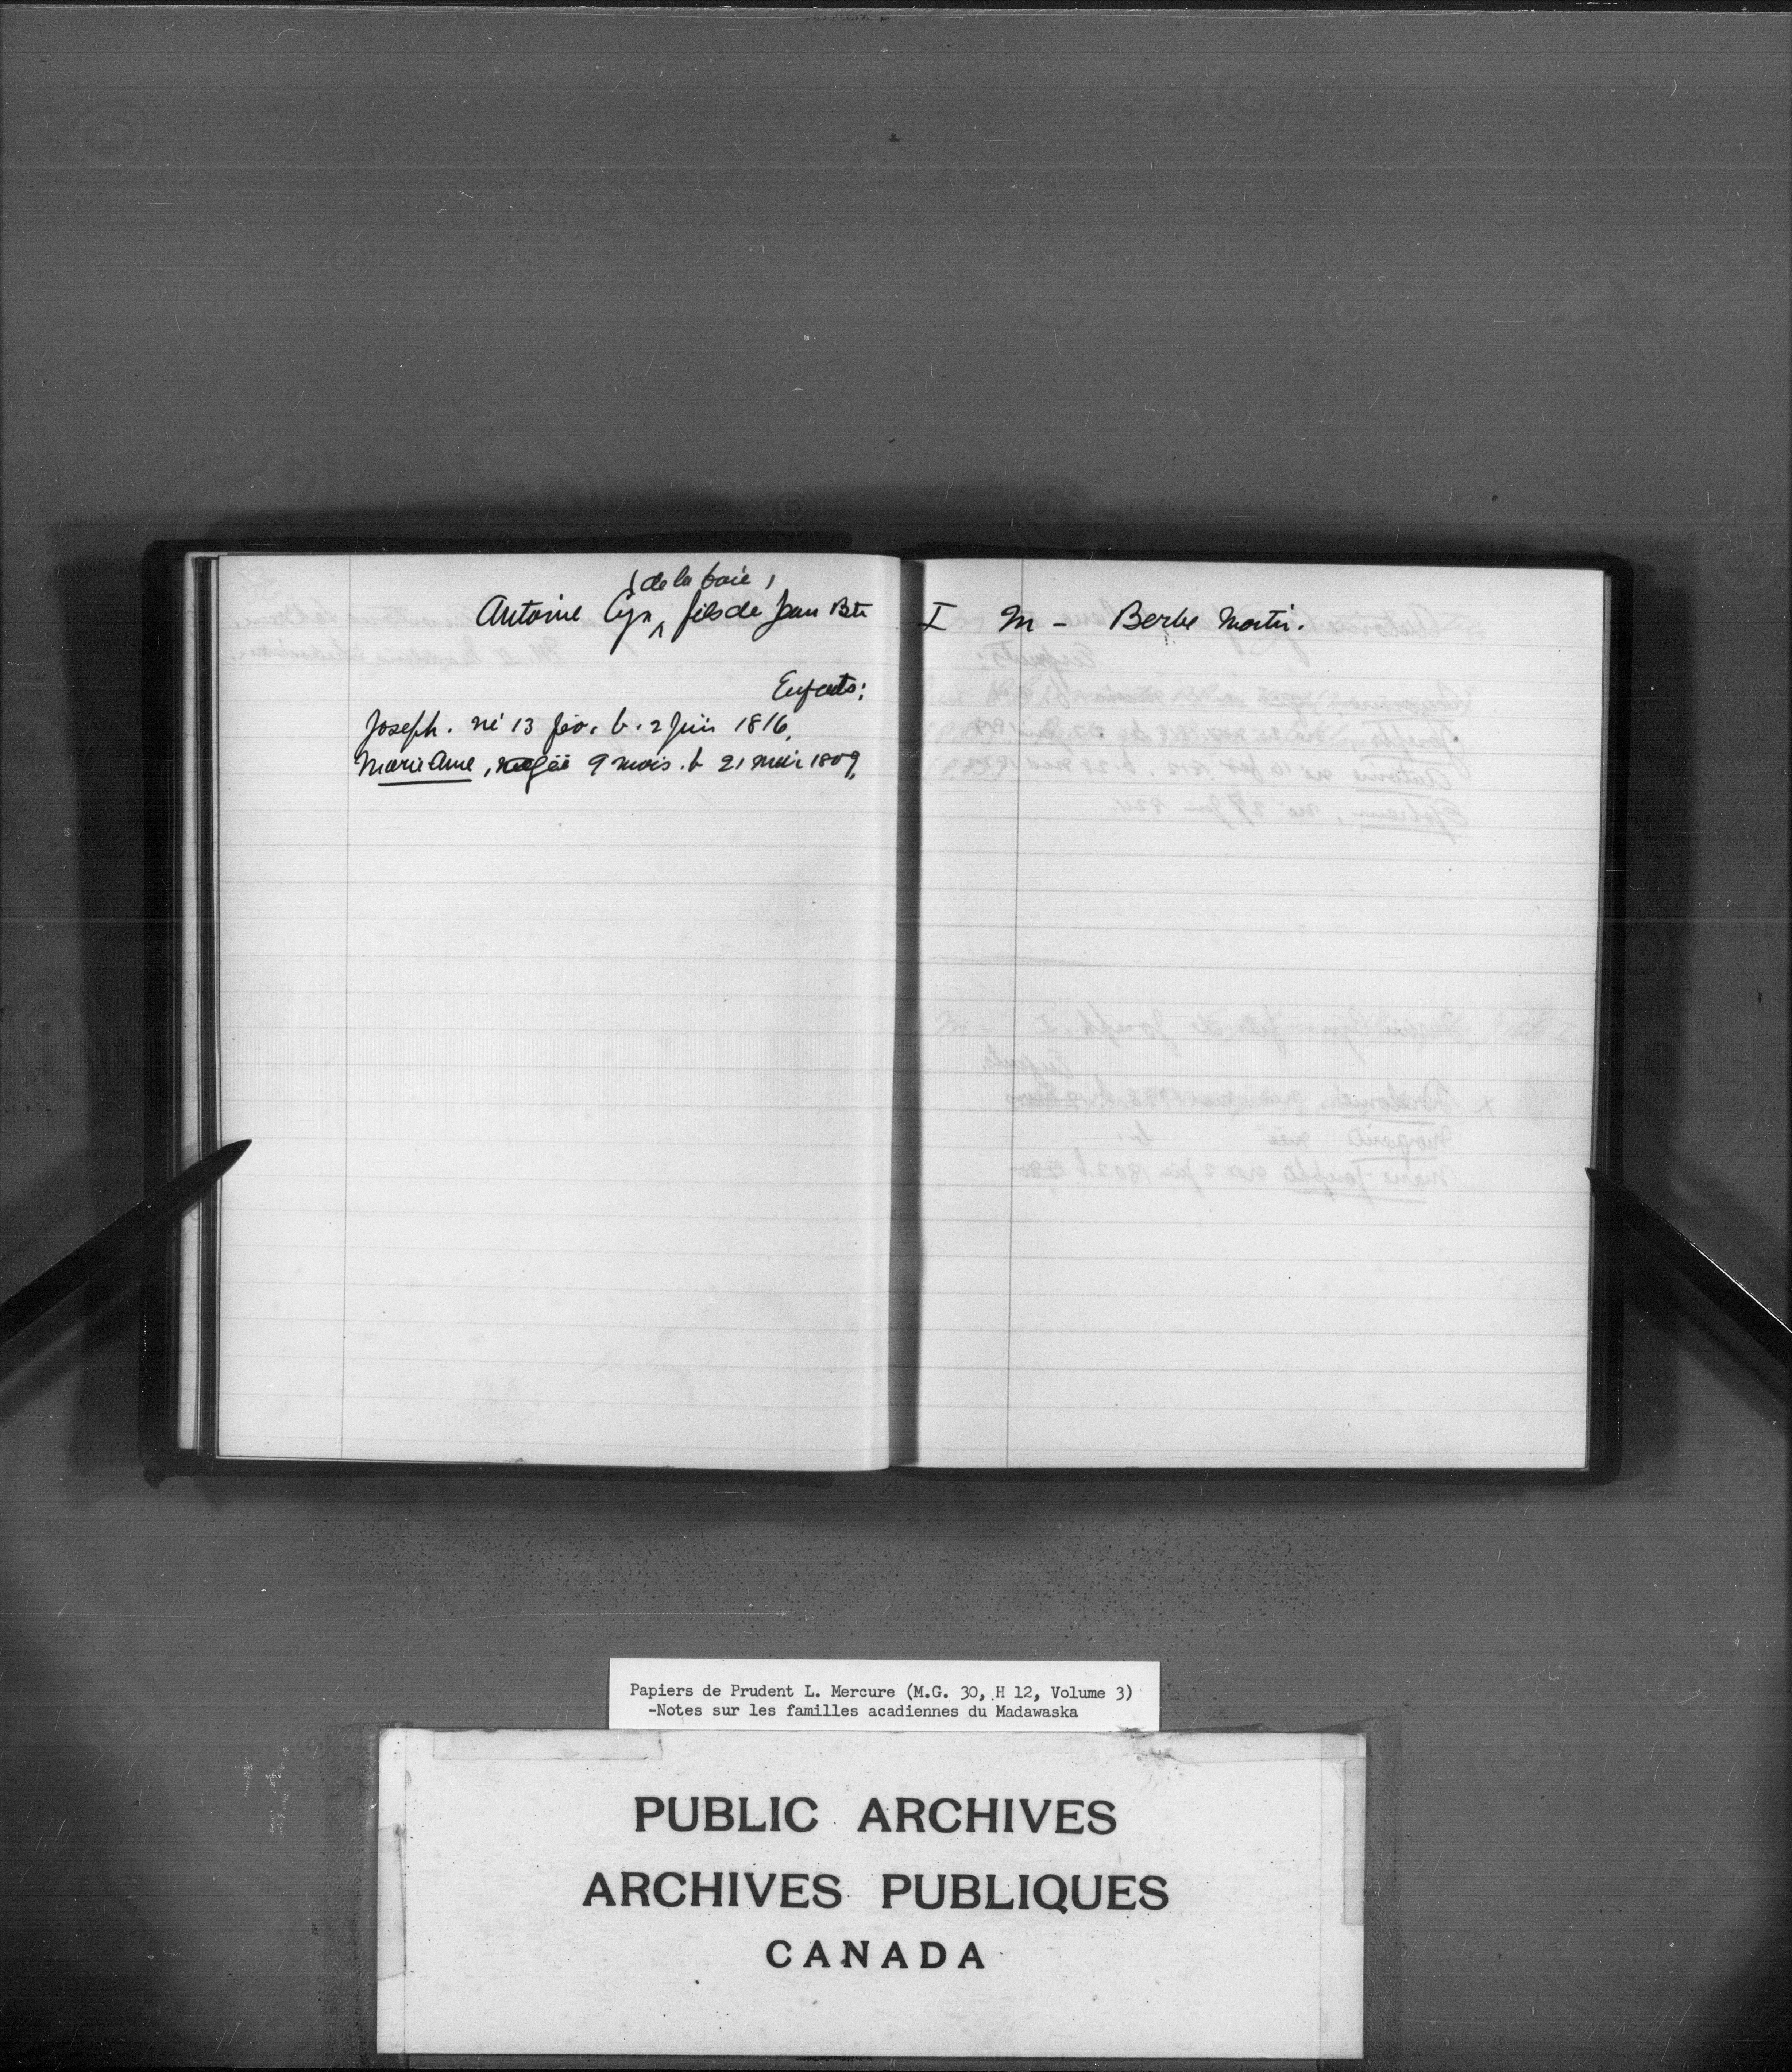 (de la baie)
Antoine Cyr ^ fils de Jean Bte I M - Barbe Martin.
Enfants:
Joseph. né 13 fév. b. 2 Juin 1816.
Marie Anne, agée 9 mois. b 21 mai 1809.
Papiers de Prudent L. Mercure (M.G. 30, H 12, Volume 3)
-Notes sur les familles acadiennes du Madawaska
PUBLIC ARCHIVES
ARCHIVES PUBLIQUES
CANADA